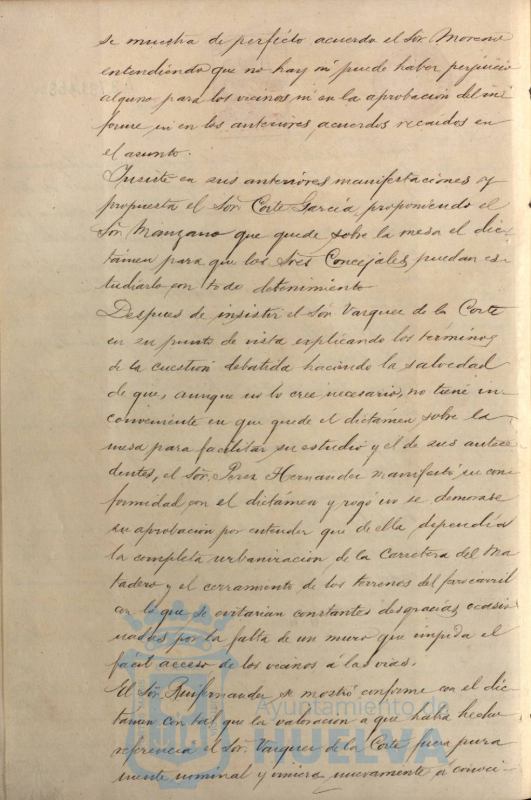 se muestra de perfecto acuerdo el Sor. Moreno
entendiendo que no hay ni puede haber perjuicio
alguno para los vecinos ni en la aprobación del in-
forme ni en los anteriores acuerdos recaidos en
el asunto.
Insiste en sus anteriores manifestaciones y
propuesta el Sor. Corte García, proponiendo el
Sor. Manzano que quede sobre la mesa el dic-
támen para que los Sres. Concejales puedan es-
tudiarlo con todo detenimiento
Despues de insistir el Sor. Vazquez de la Corte
en su punto de vista explicando los términos
de la cuestión debatida haciendo la salvedad
de que, aunque no lo cree necesario, no tiene in-
conveniente en que quede el dictámen sobre la
mesa para facilitar su estudio y el de sus antece-
dentes, el Sor. Perez Hernandez manifestó su con-
formidad con el dictámen y rogó no se demorase
su aprobación por entender que de ella dependía
la completa urbanización de la Carretera del Ma-
tadero y el cerramiento de los terrenos del ferrocarril
con lo que se evitarian constantes desgracias ocasio-
nadas por la falta de un muro que impida el
fácil acceso de los vecinos á las vias.
El Sor. Ruifernandez se mostró conforme con el dic-
tamen con tal que la valoración a que había hecho
referencia el Sor. Vazquez de la Corte fuera pura
mente nominal y viniera nuevamente á conoci-
Ayuntamiento de
HUELVA